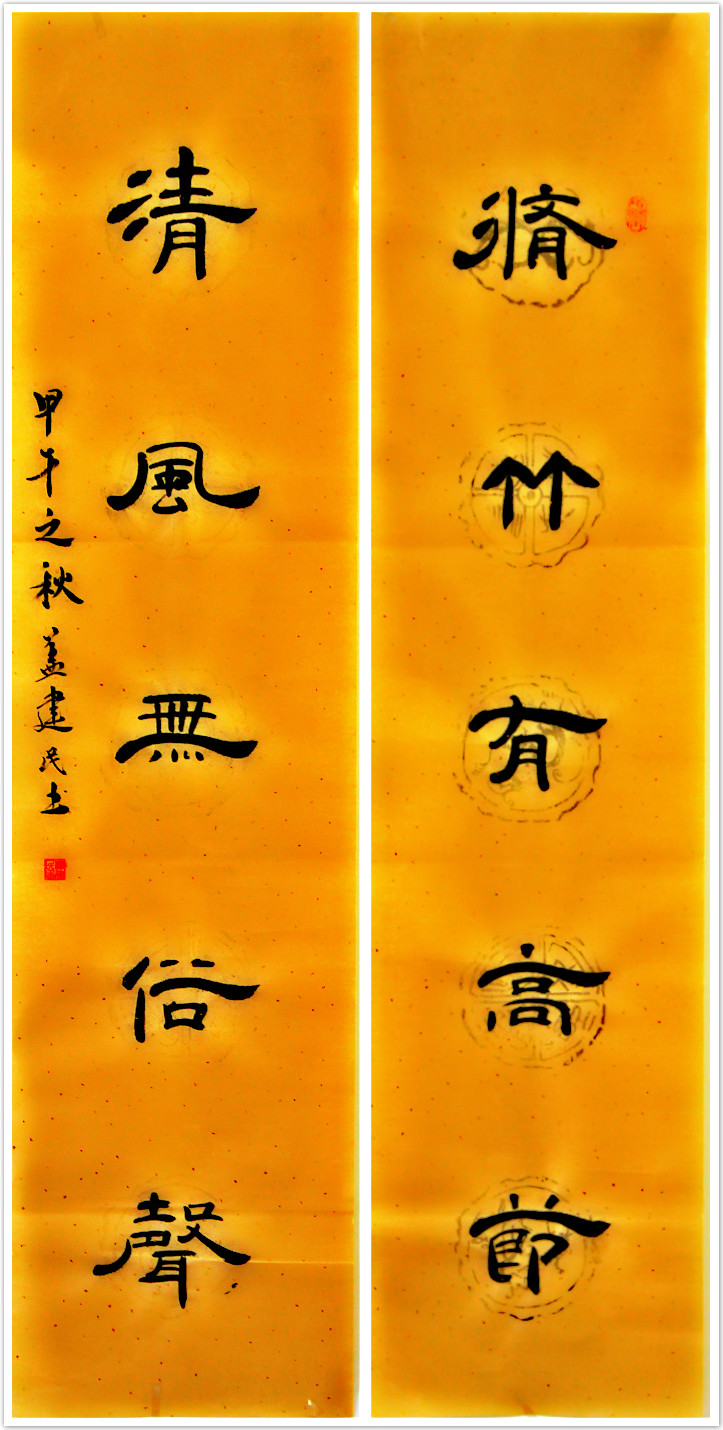 脩竹有高節
清風無俗聲
甲午之秋 盖建民书